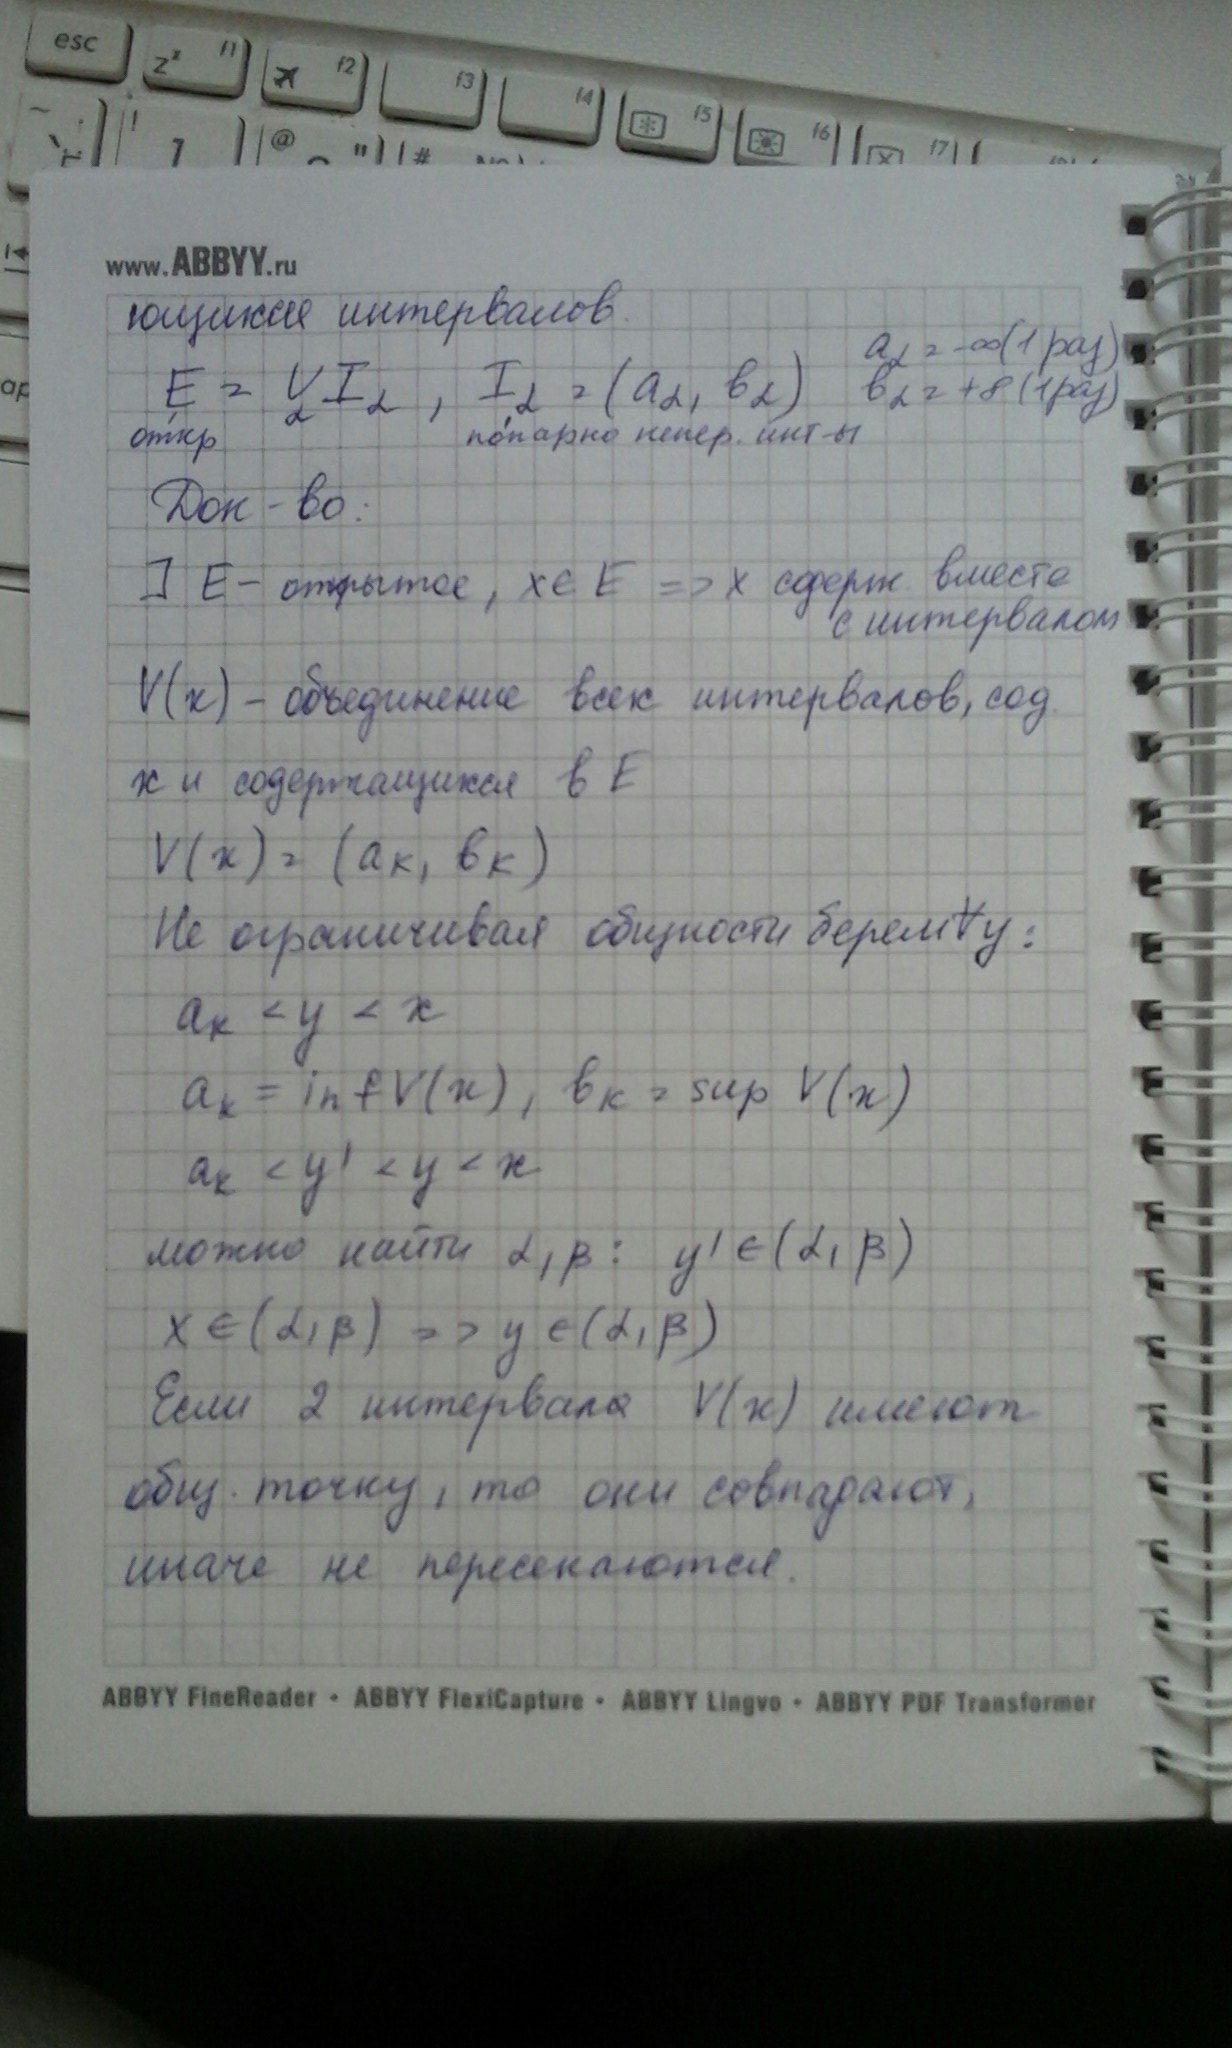 esc
z² f1
f2
f3
f4
f5
f6
f7
~
! 1
@ "
#
www.ABBYY.ru
ющихся интервалов.
E = ∪_α I_α , I_α = (a_α, b_α) a_α = -∞ (1 раз)
b_α = +∞ (1 раз)
откр попарно непер. инт-ы
Док-во:
] E - открытое, x ∈ E => x содерж. вместе
с интервалом
V(x) - объединение всех интервалов, сод.
x и содержащихся в E
V(x) = (a_k, b_k)
Не ограничивая общности берем ∀y:
a_k < y < x
a_k = inf V(x), b_k = sup V(x)
a_k < y' < y < x
можно найти α, β: y' ∈ (α, β)
x ∈ (α, β) => y ∈ (α, β)
Если 2 интервала V(x) имеют
общ. точку, то они совпадают,
иначе не пересекаются.
ABBYY FineReader • ABBYY FlexiCapture • ABBYY Lingvo • ABBYY PDF Transformer